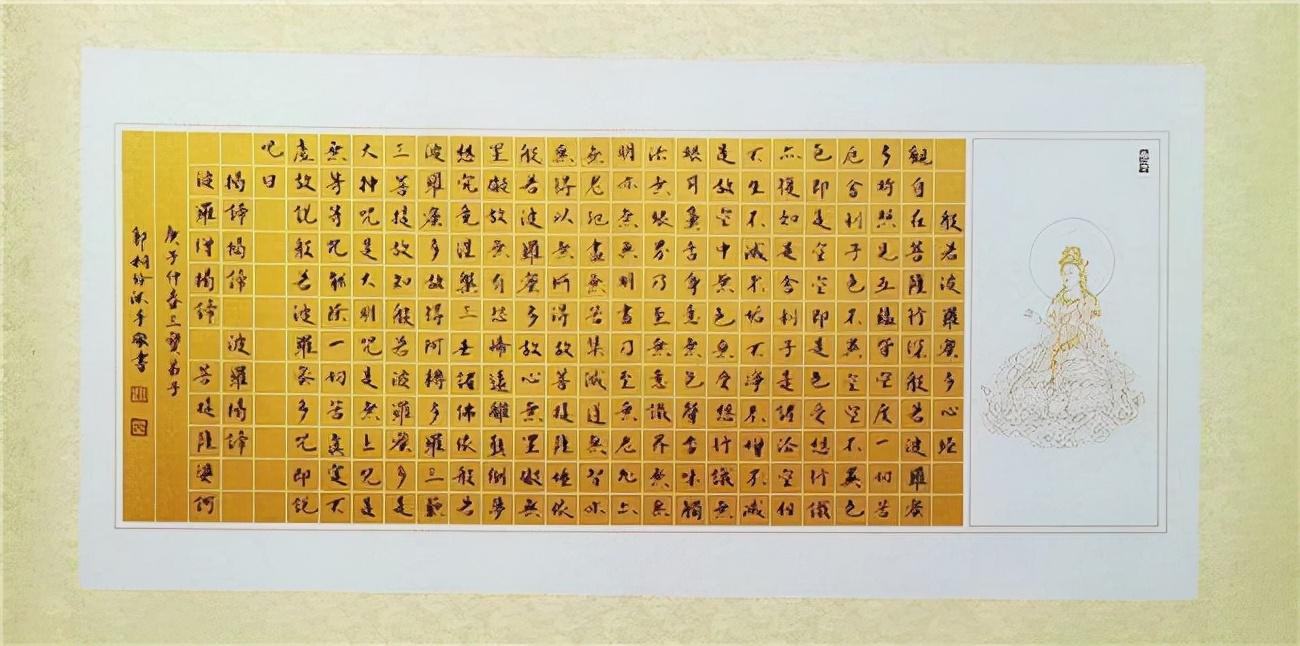 般若波羅蜜多心經
觀自在菩薩行深般若波羅蜜
多時照見五蘊皆空度一切苦
厄舍利子色不異空空不異色
色即是空空即是色受想行識
亦復如是舍利子是諸法空相
不生不滅不垢不淨不增不減
是故空中無色無受想行識無
眼耳鼻舌身意無色聲香味觸
法無眼界乃至無意識界無無
明亦無無明盡乃至無老死亦
無老死盡無苦集滅道無智亦
無得以無所得故菩提薩埵依
般若波羅蜜多故心無罣礙無
罣礙故無有恐怖遠離顛倒夢
想究竟涅槃三世諸佛依般若
波羅蜜多故得阿耨多羅三藐
三菩提故知般若波羅蜜多是
大神咒是大明咒是無上咒是
無等等咒能除一切苦真實不
虛故說般若波羅蜜多咒即說
咒曰
揭諦揭諦 波羅揭諦
波羅僧揭諦 菩提薩婆訶
庚子仲春三寶弟子
沐手敬書